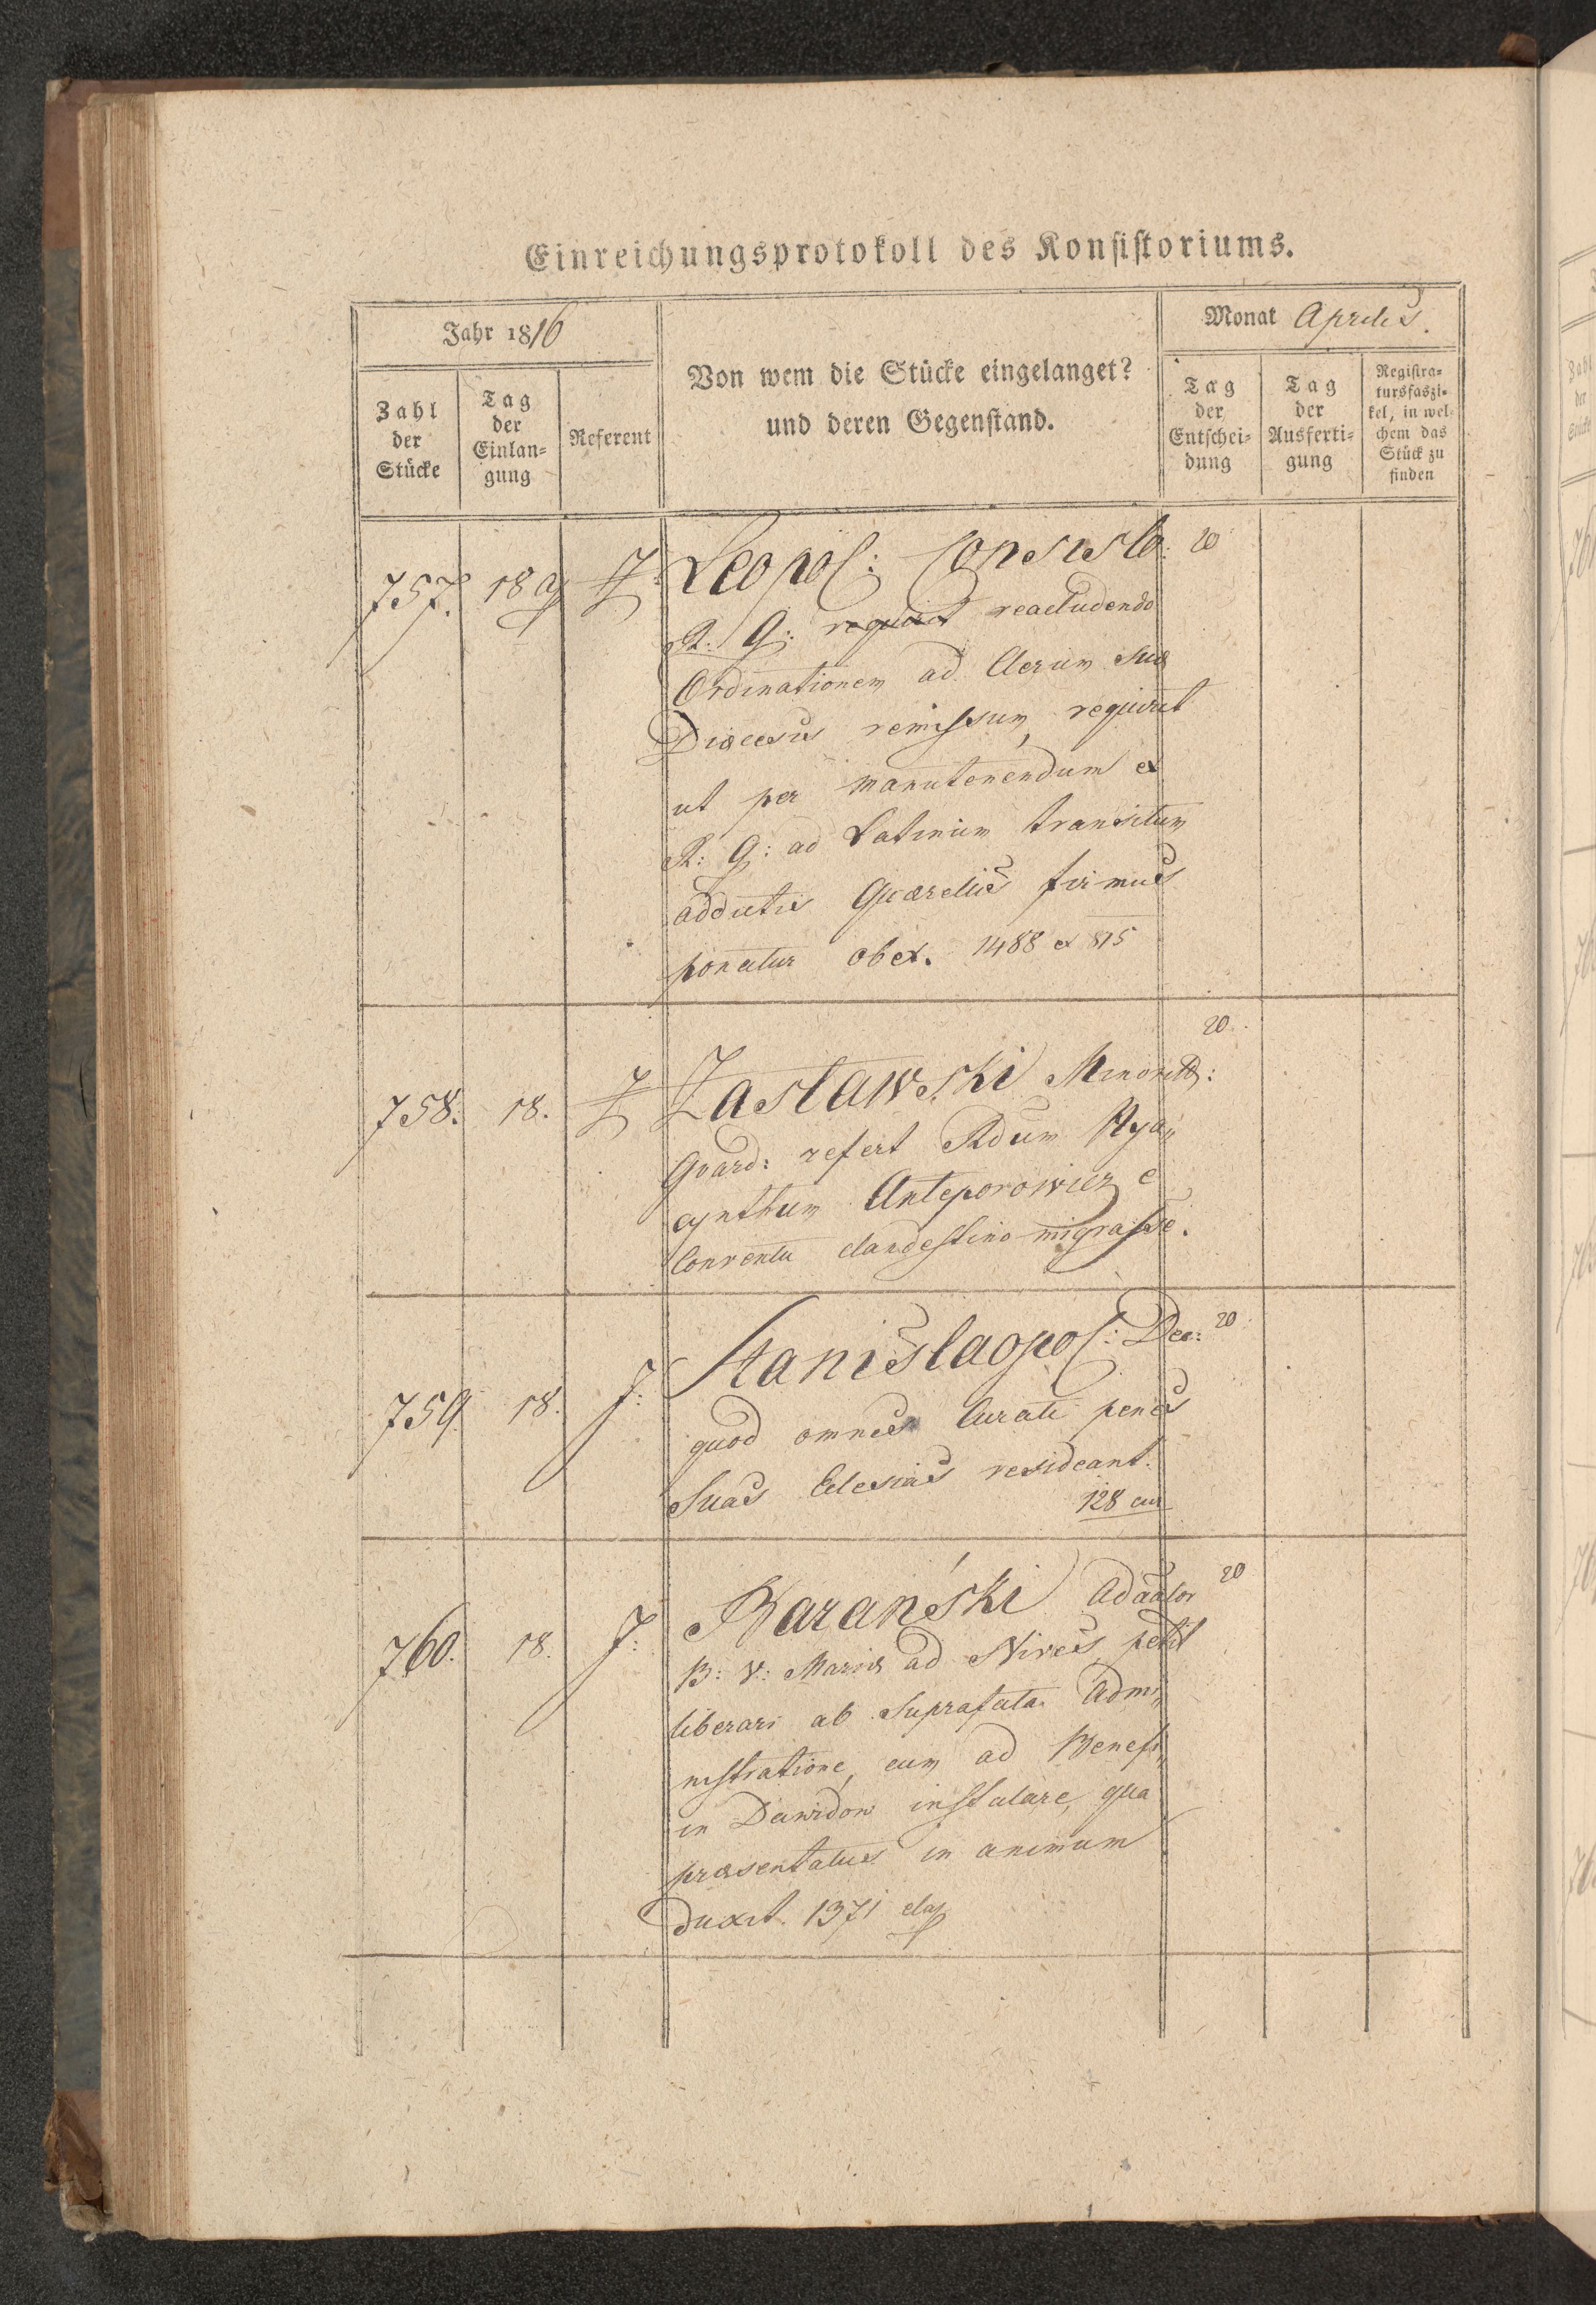 Einreichungsprotokoll des Konsistoriums.
Jahr 1816
Monat Aprilis.
Zahl der Stücke
Tag der Einlan-gung
Referent
Von wem die Stücke eingelanget?
und deren Gegenstand.
Tag der Entschei-dung
Tag der Ausferti-gung
Registra-tursfaszi-kel, in wel-chem das Stück zu finden
757. 18 Z: Leopol: Consisto: 20
R: G: reacludendo
Ordinationem ad Clerum suæ
Diœcesis remissum, requirit
ut per manutenendum e
R: G: ad Latinum transitum
additis Quærelis firmus
ponatur obex. 1488 ex 815
20
758. 18. Z Zasławski Minorit:
Guard: refert Rdum Hya„
cynthum Anteporowicz e
Conventu clandestino migrasse.
759. 18. J: Stanislaopol: Dec: 20
quod omnes Curati penes
Suas Eclesias resideant.
128 cur
760. 18. J: Barański Adaator 20
B: V: Mariæ ad Nives, petit
liberari ab Suprafata Admi„
nistratione, cum ad Benefi„
in Dawidow installare, qua
præsentatus in animum
duxit. 1371 elap